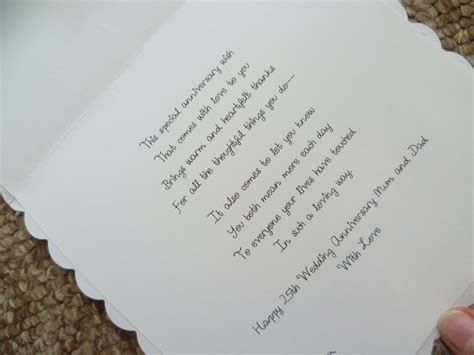 This special anniversary wish
That comes with love to you
Brings warm and heartfelt thanks
For all the thoughtful things you do—
It also comes to let you know
You both mean more each day
To everyone your lives have touched
In such a loving way.
Happy 25th Wedding Anniversary Mum and Dad
With Love